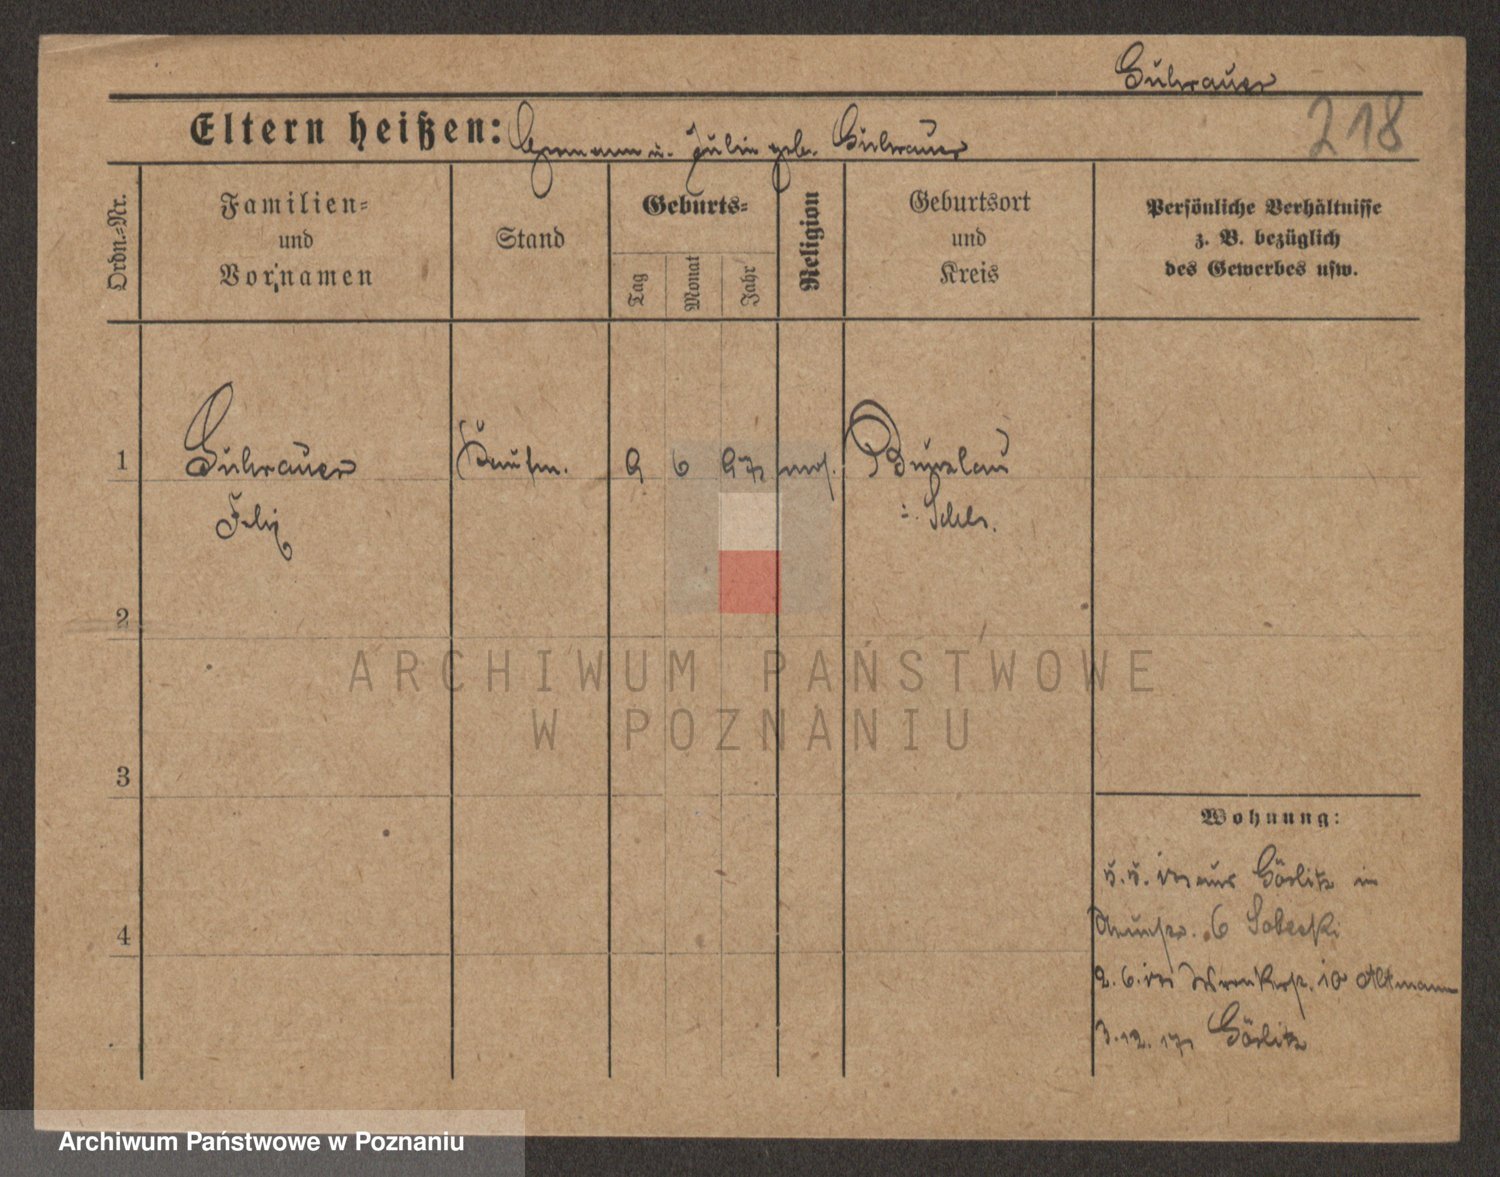 Guhrauer
218
Eltern heißen: Hermann u. Julie geb. Guhrauer
Ordn.-Nr.
Familien-
und
Vornamen
Stand
Geburts-
Tag
Monat
Jahr
Religion
Geburtsort
und
Kreis
Persönliche Verhältnisse
z. B. bezüglich
des Gewerbes usw.
1
Guhrauer
Kaufm.
9
6
mos.
Bunzlau
Felix
i. Schles.
2
ARCHIWUM PAŃSTWOWE
W POZNANIU
3
Wohnung:
aus Görlitz in
4
6 Sobeski
10 Altmann
3.12. Görlitz
Archiwum Państwowe w Poznaniu